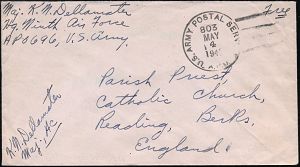 Maj. K. N. Dellamater
Hq Ninth Air Force
APO 696, U.S. Army.
U.S. ARMY POSTAL SER
803
MAY
14
194
Free
Parish Priest
Catholic Church,
Reading, Berks.
England.
K N Dellamater
Maj, AC